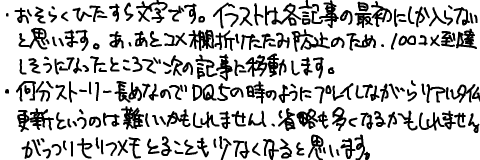 ・おそらくひたすら文字です。イラストは各記事の最初にしか入らない
と思います。あ、あとコメ欄折りたたみ防止のため、100コメ到達
しそうになったところで次の記事に移動します。
・何分ストーリー長めなのでDQ5の時のようにプレイしながらリアルタイム
更新というのは難しいかもしれませんし、省略も多くなるかもしれません。
がっつりセリフメモとることも少なくなると思います。